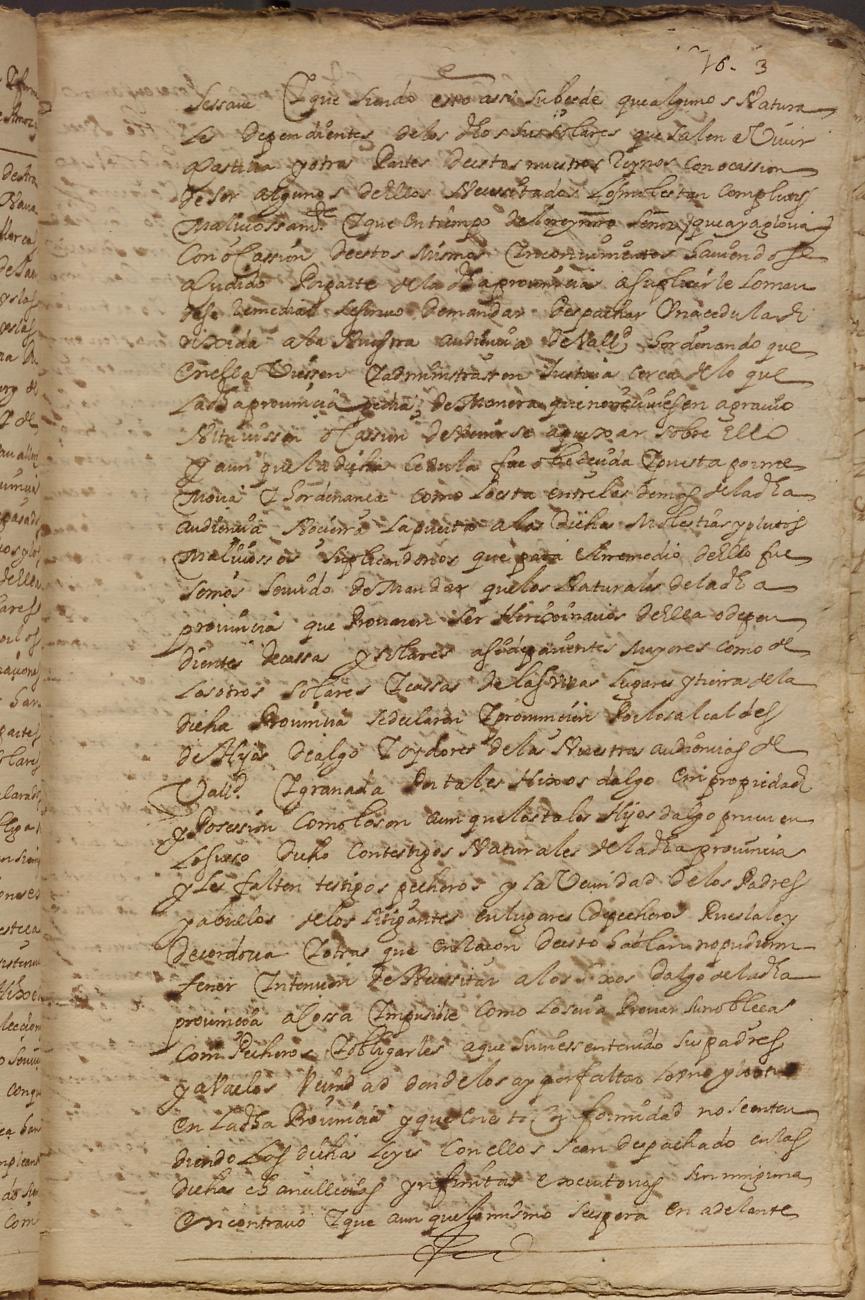 16. 3
sessave Y que siendo esto assi subcede que algunos Natura
les dependientes de los dhos sus solares que salen a Vivir
a castilla y otras Partes destos nuestros Reynos con ocassion
de ser algunos de Ellos Necessitados los molestan con pleitos
maliciossamte Y que en tiempo del Rey mi señor que aya gloria
Con ocassion destos mismos Inconvinientes haviendose
acudido Por parte de la dha provincia a suplicarle lo man
dase Remediar se sirvio de mandar despachar Una cedula di
rixida a la Nuestra audiencia de Valld hordenando que
en ella Viesen Y administrassen Justicia cerca de lo que
la dha provincia pedia, de Manera que no reciviesen agravio
Ni tuviessen ocassion de Venirse a quexar sobre Ello
Y aun que la dicha cedula fue obedecida Y puesta por me
moria Y hordenanca como lo esta entre las demas de la dha
audiencia No cierra la puerta a las dichas Molestias y pleitos
maliciosos suplicandonos que para el rremedio de Ello fue
semos servido de Mandar que los Naturales de la dha
provincia que Provaren ser Horixinarios de Ella o depen
dientes de cassa y solares assi de parientes mayores como de
los otros solares Y cassas de las Villas lugares y tierra de la
dicha Provincia se declaren Y pronuncien Por los alcaldes
de Hijos dealgo Y oydores de las Nuestras audiencias de
Valld Y granada Por tales Hixos dalgo en propiedad
y Posession como lo son aun que los tales Hijos dalgo prueven
lo suso dicho con testigos Naturales de la dha provincia
y Les falten testigos pecheros y la Vecindad de los Padres
y abuelos de los litigantes en lugares de pecheros Pues la ley
de cordova Y otras que en Racon desto hablan no pudieron
tener Intencion de Necessitar a los hixos dalgo de la dha
provincia a cossa Imposible como lo seria Provar su nobleca
Con Pecheros Y obligarles a que huviessen tenido sus padres
y avuelos Vecindad donde los ay por falta
en La dha Provincia y que en esta conformidad
diendo Las dichas leyes con ellos se an despachado en las
dichas chancillerias ynfinitas executorias sin ninguna
en contrario Y que aun que lo mismo se espera en adelante